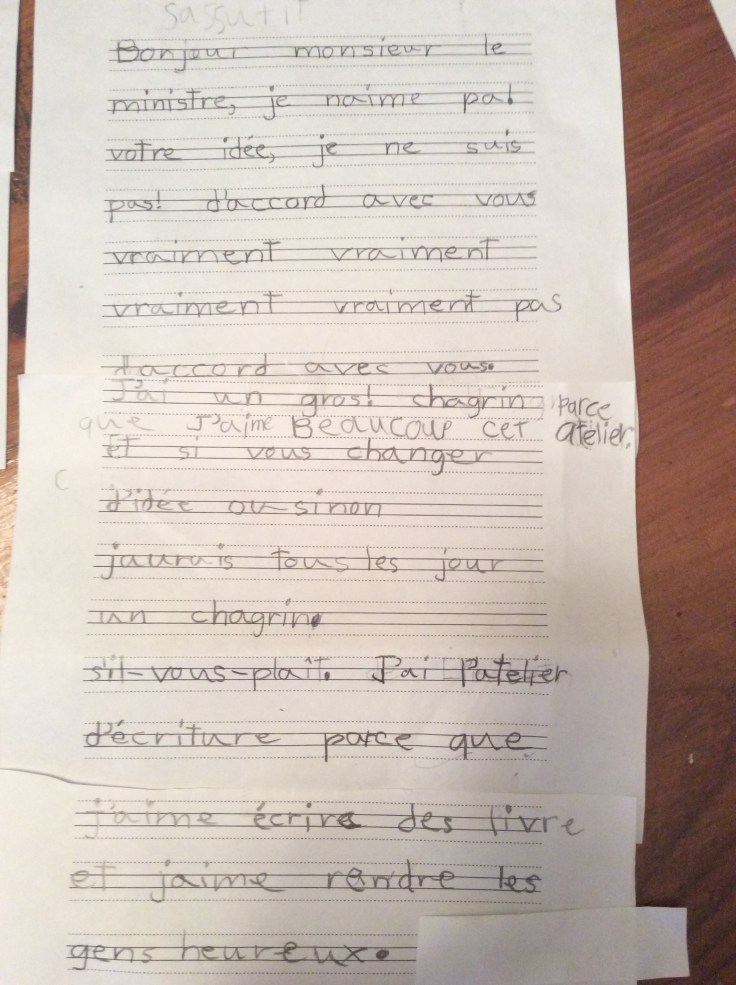 Bonjour monsieur le
ministre, je naime pas!
votre idée, je ne suis
pas! d'accord avec vous
vraiment vraiment
vraiment vraiment pas
d'accord avec vous.
J'ai un gros! chagrin parce
que J'aime BEAUCOUP CET atelier.
Et si vous changer
d'idée ou sinon
jaurais tous les jour
un chagrin.
s'il-vous-plaît. J'ai l'atelier
d'écriture parce que
j'aime écrire des livre
et jaime rendre les
gens heureux.